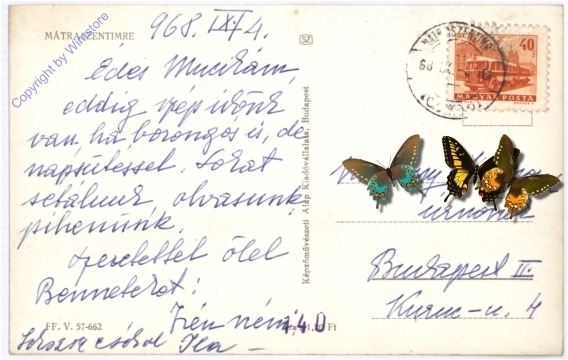 MÁTRASZENTIMRE
968. IX. 4.
Édes Mucikám,
eddig szép időnk
van, ha borongós is, de
napsütéssel. Sokat
sétálunk, olvasunk,
pihenünk.
Szeretettel ölel
Benneteket:
Irén néni
csókol Ica
FF. V. 57-662
Ára 1,40 Ft
Képzőművészeti Alap Kiadóvállalata, Budapest
SZ
MÁTRASZENTIMRE
40
MAGYAR POSTA
Budapest II.
u. 4
Copyright by Winstore